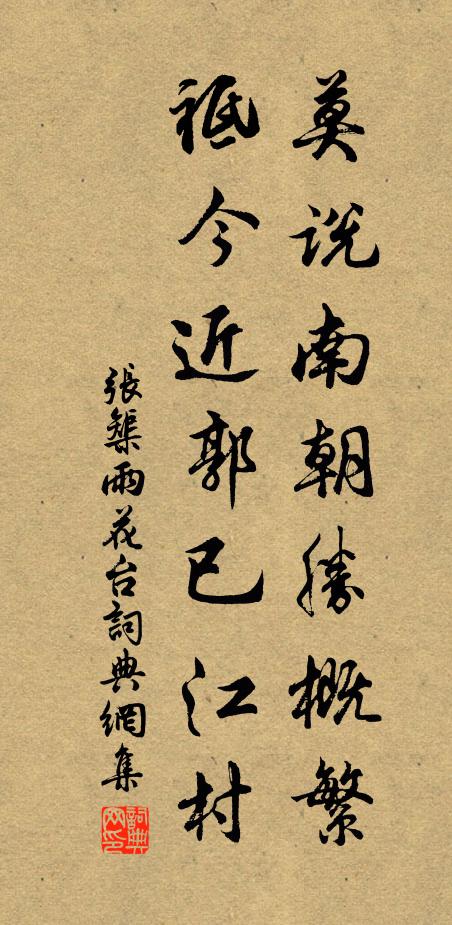 莫説南朝勝概繁
祗今近郭已江村
張榘雨花台詞典網集
詞典網印